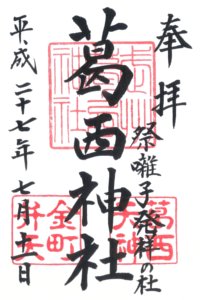 奉拝
祭囃子発祥の杜
葛西神社
平成二十七年七月十二日
葛西神社
金町